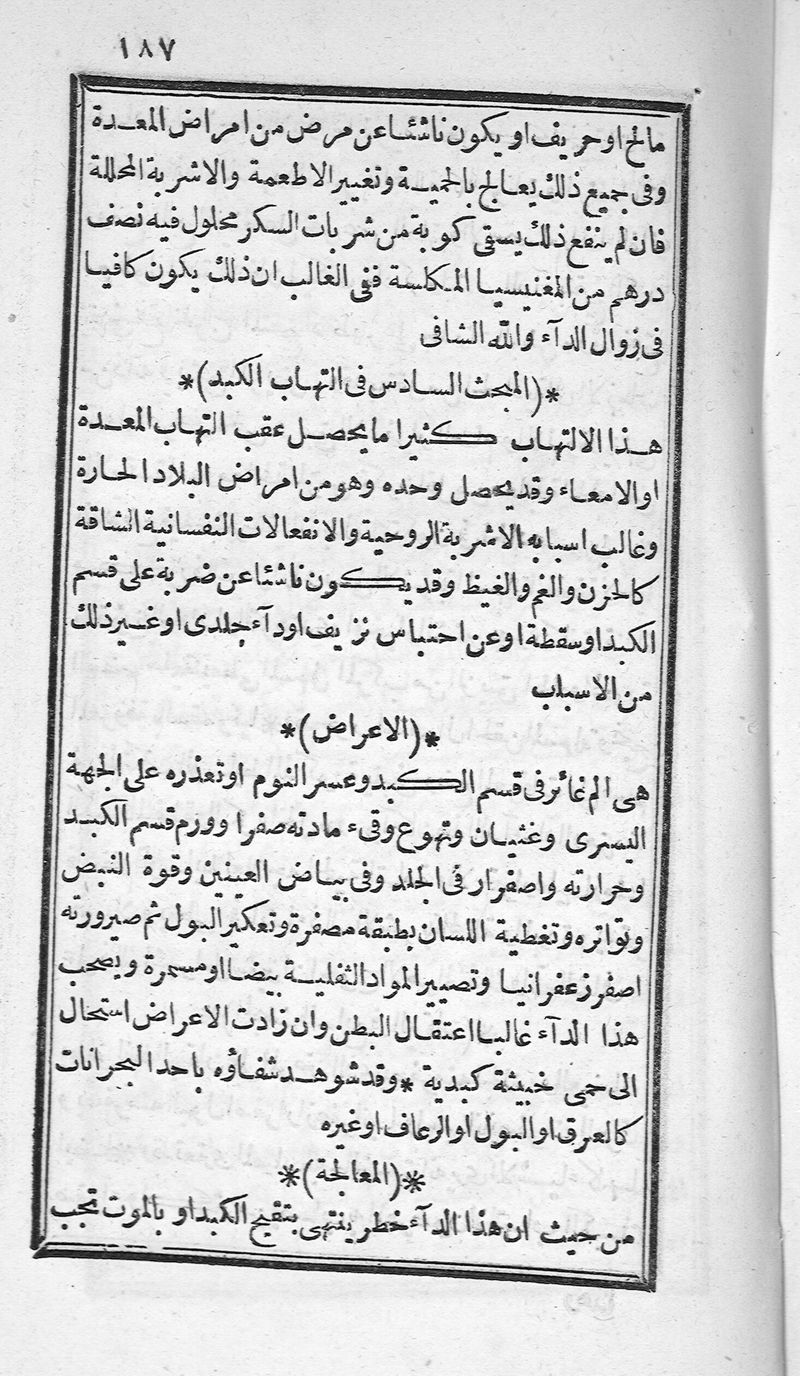 ١٨٧
مالح او حريف او يكون ناشئا عن مرض من امراض المعدة
وفى جميع ذلك يعالج بالحمية وتغيير الاطعمة والاشربة المحللة
فان لم ينفع ذلك يسقى كوبة من شربات السكر محلول فيه نصف
درهم من المغنيسيا المكلسة ففى الغالب ان ذلك يكون كافيا
فى زوال الدآء والله الشافى
*(المبحث السادس فى التهاب الكبد)*
هذا الالتهاب كثيرا ما يحصل عقب التهاب المعدة
او الامعاء وقد يحصل وحده وهو من امراض البلاد الحارة
وغالب اسبابه الاشربة الروحية والانفعالات النفسانية الشاقة
كالحزن والغم والغيظ وقد يكون ناشئا عن ضربة على قسم
الكبد او سقطة او عن احتباس نزيف او دآء جلدى او غير ذلك
من الاسباب
*(الاعراض)*
هى الم غائر فى قسم الكبد وعسر النوم او تعذره على الجهة
اليسرى وغثيان وتهوع وقىء مادته صفرا وورم قسم الكبد
وحرارته واصفرار فى الجلد وفى بياض العينين وقوة النبض
وتواتره وتغطية اللسان بطبقة مصفرة وتعكير البول ثم صيرورته
اصفر زعفرانيا وتصيير المواد الثفلية بيضا او مسمرة ويصحب
هذا الدآء غالبا اعتقال البطن وان زادت الاعراض استحال
الى حمى خبيثة كبدية * وقد شوهد شفاؤه باحد البحرانات
كالعرق او البول او الرعاف او غيره
*(المعالجة)*
من حيث ان هذا الدآء خطر ينتهى بتقيح الكبد او بالموت تجب